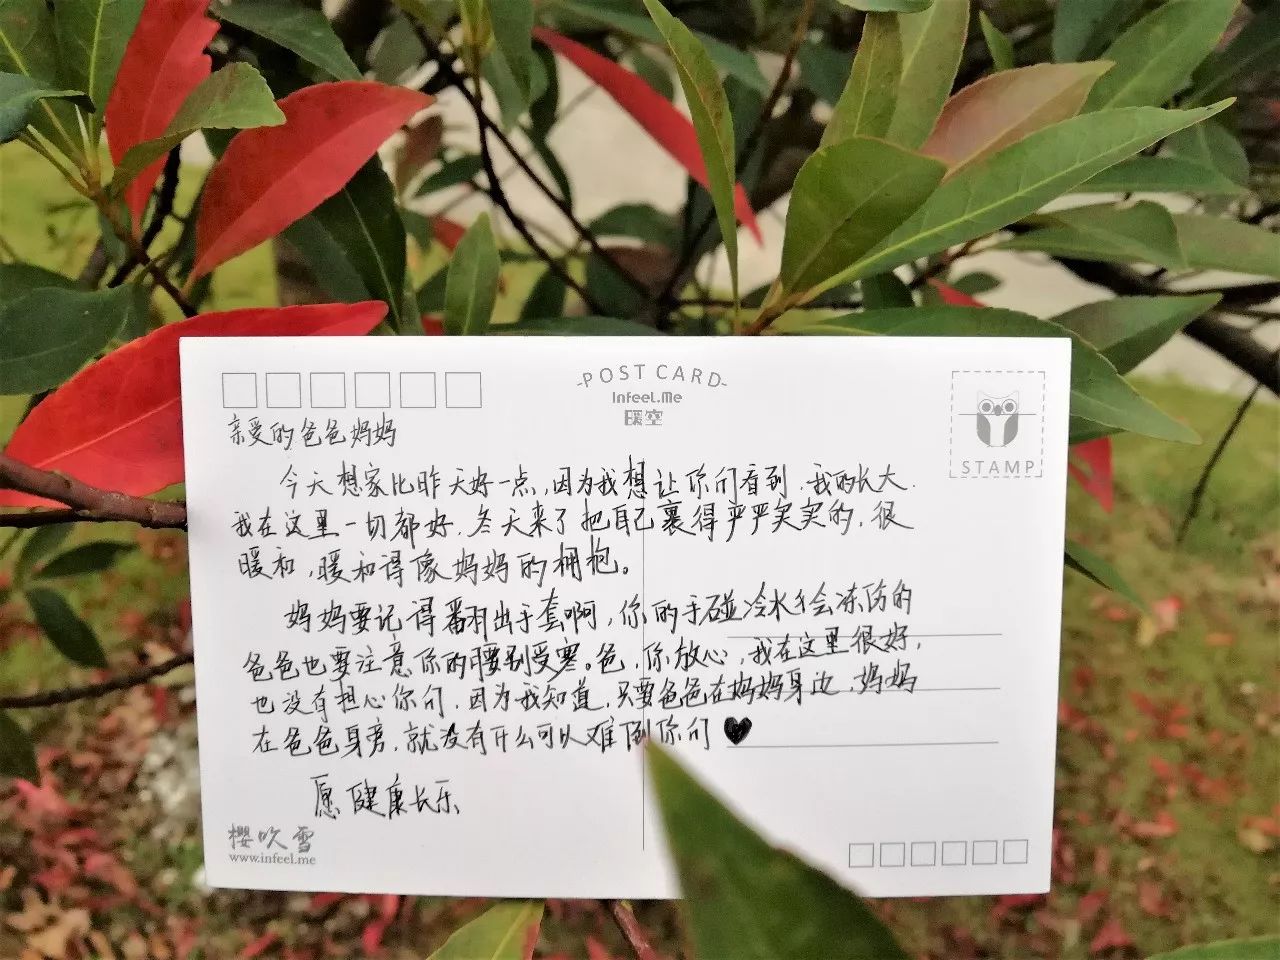 POST CARD
InFeel.Me
暖空
STAMP
亲爱的爸爸妈妈
今天想家比昨天好一点,因为我想让你们看到,我的长大.
我在这里一切都好.冬天来了把自己裹得严严实实的,很
暖和,暖和得像妈妈的拥抱。
妈妈要记得翻出手套啊,你的手碰冷水才会冻伤的
爸爸也要注意你的腰别受寒。爸,你放心,我在这里很好,
也没有担心你们,因为我知道,只要爸爸在妈妈身边,妈妈
在爸爸身旁,就没有什么可以难倒你们
愿健康长乐
樱吹雪
www.infeel.me